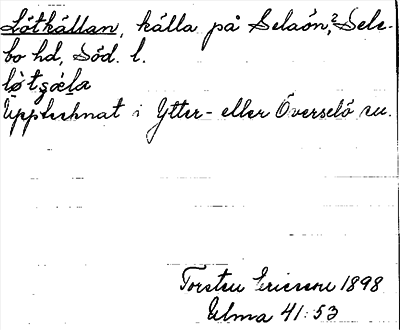 Lötkällan, källa på Selaön,? Sele-
bo hd, Söd. l.
lö̀tʒæla
Upptecknat i Ytter- eller Överselö sn.
Torsten Ericson 1898
Ulma 41:53